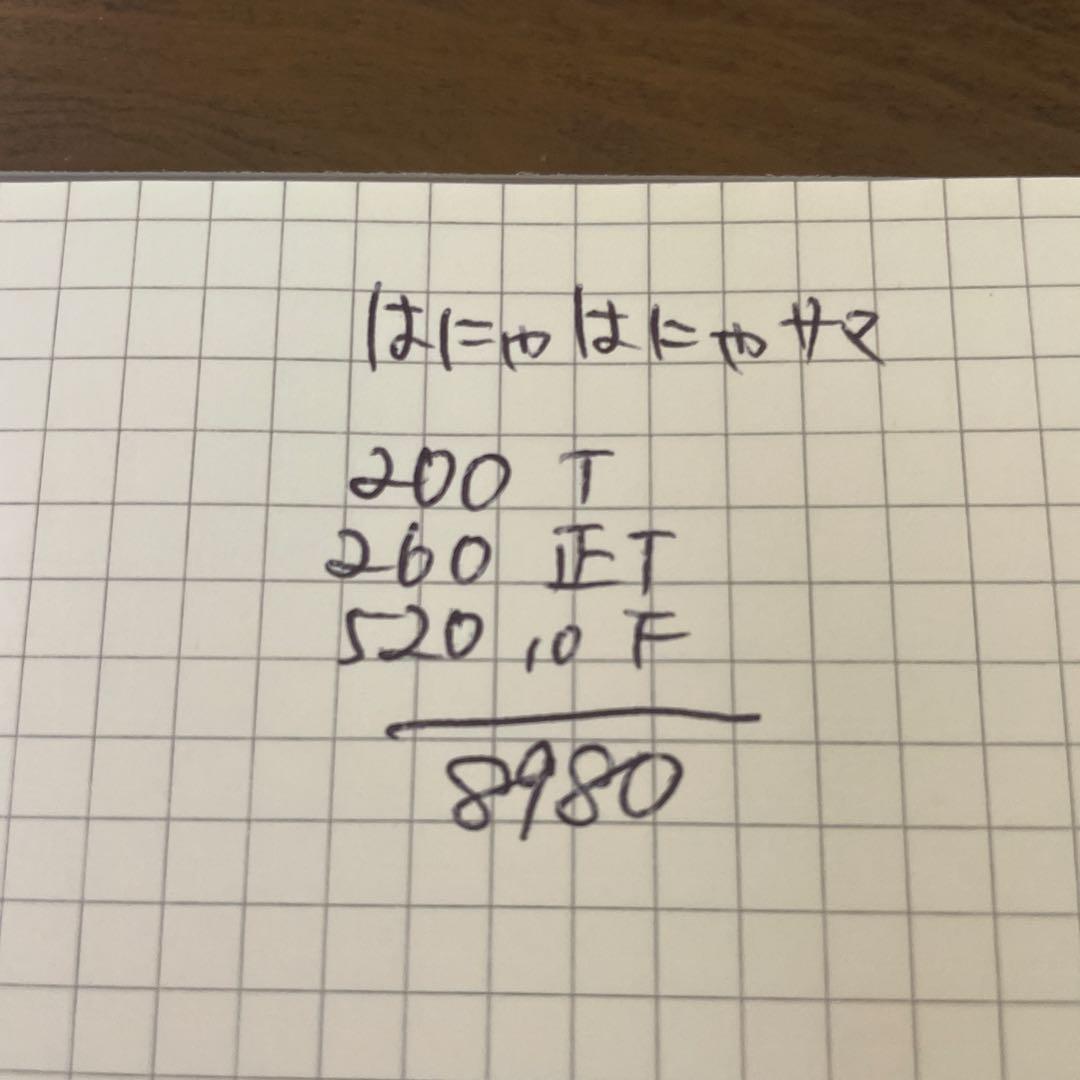 はにゃはにゃサマ
200 T
260 正T
520 10 F
8980